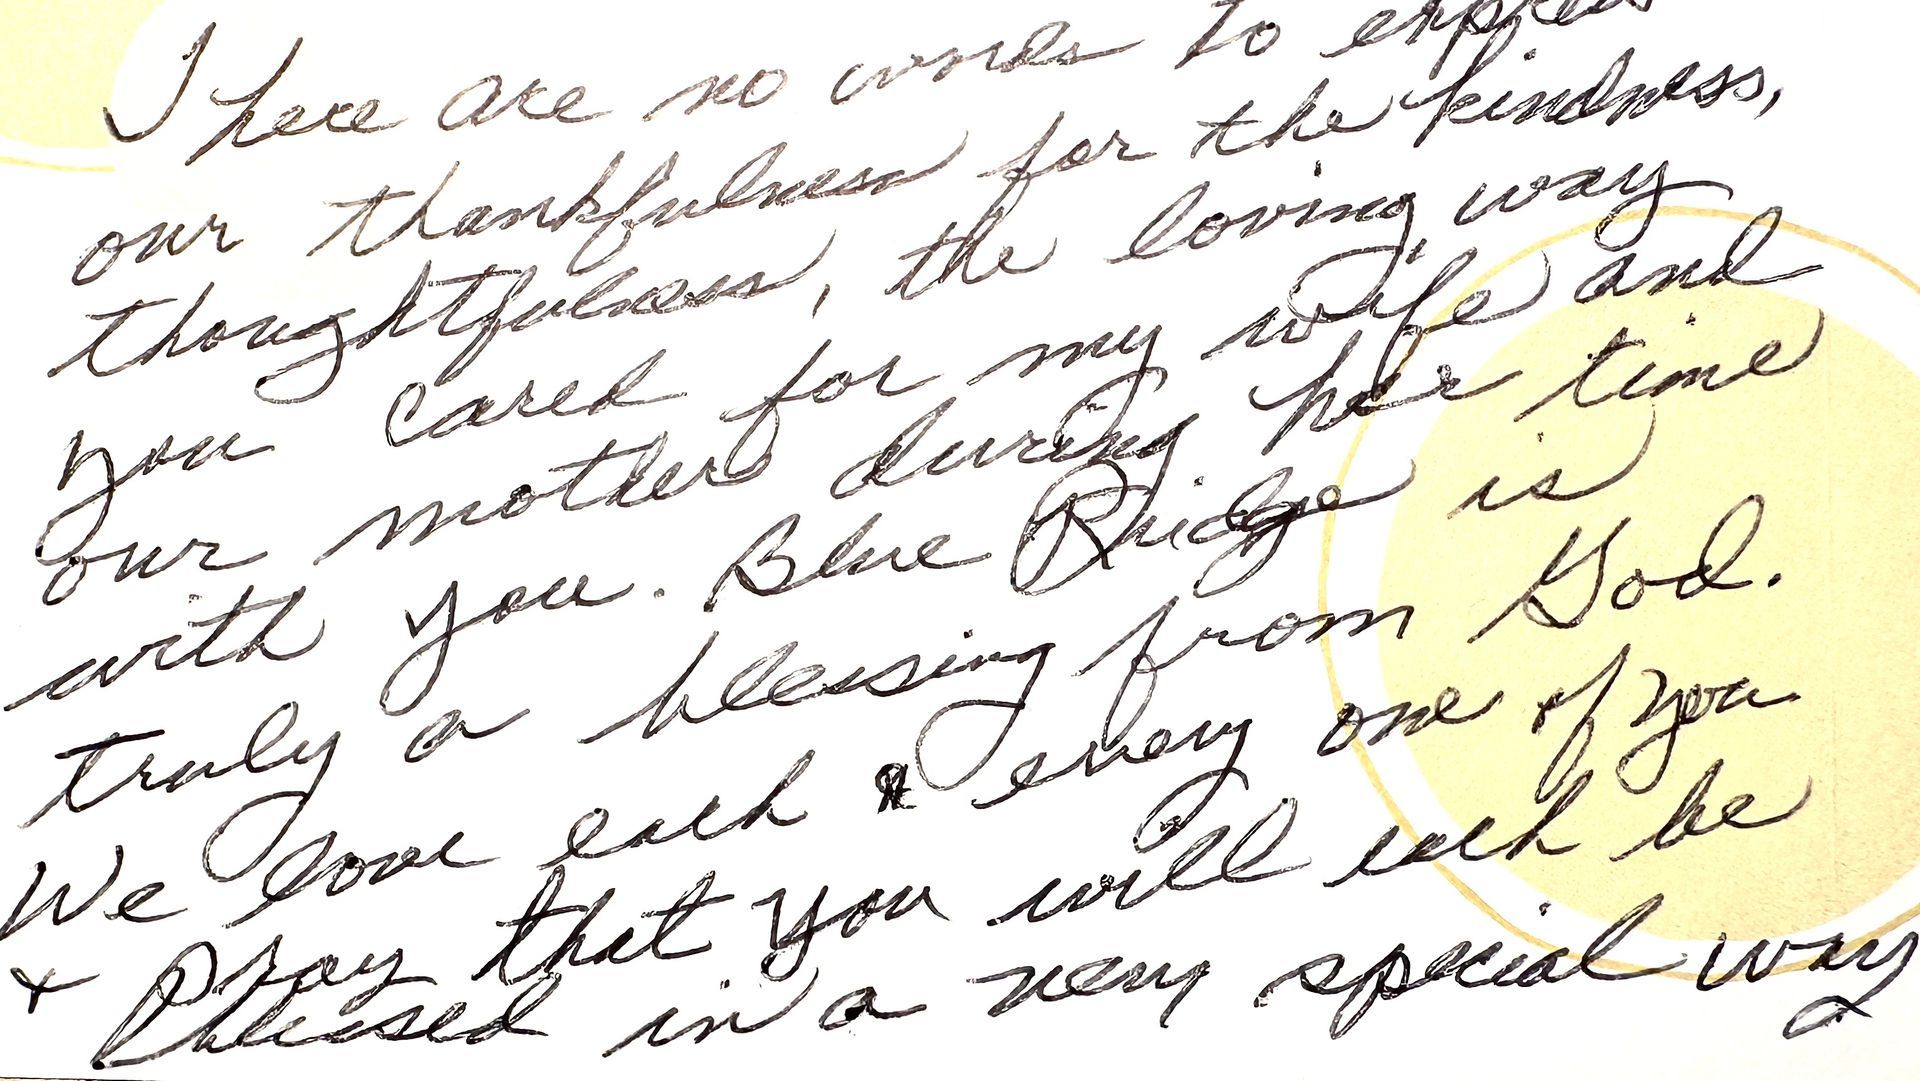 There are no words to express
our thankfulness for the kindness,
thoughtfulness, the loving way
you cared for my wife and
our mother during her time
with you. Blue Ridge is
truly a blessing from God.
We love each & every one of you
+ Pray that you will each be
blessed in a very special way